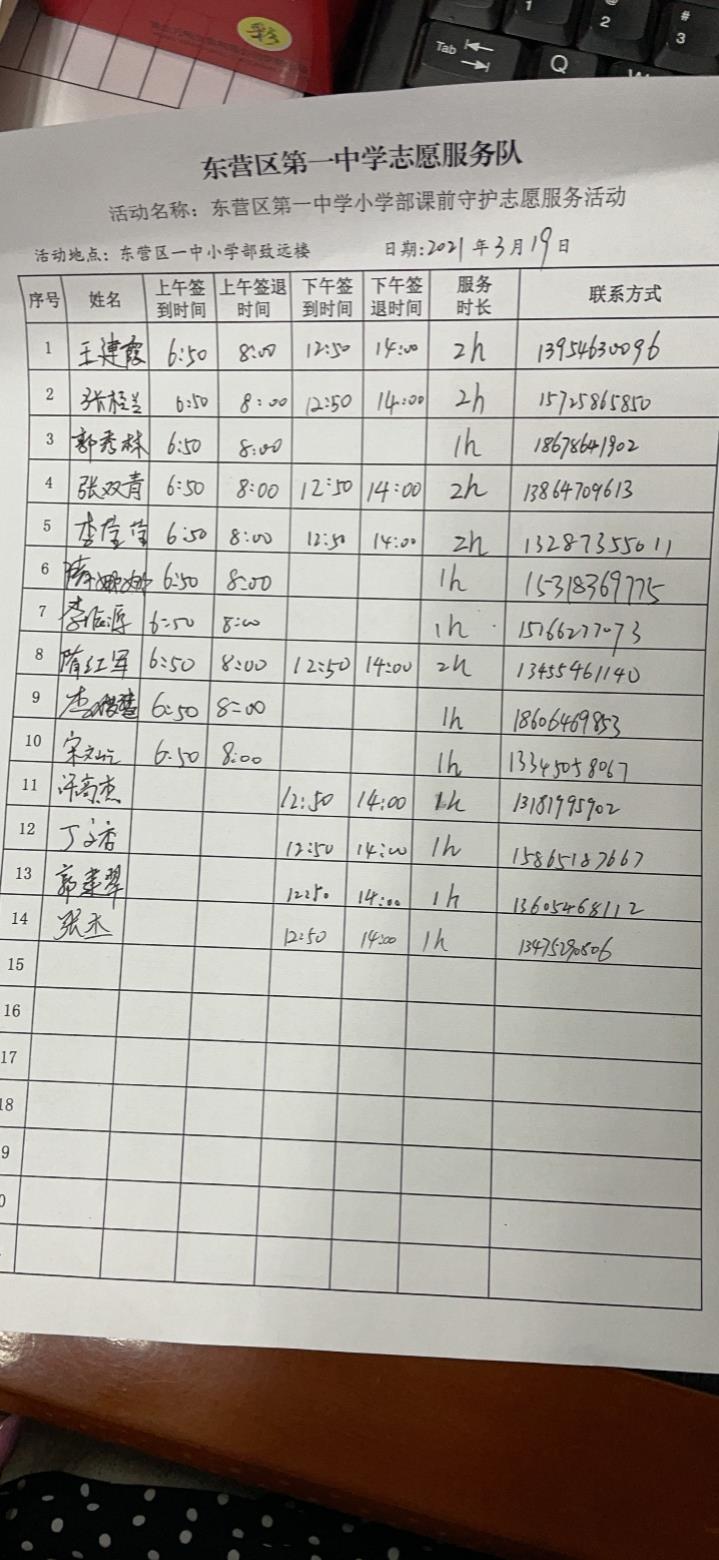 彩
Tab
Q
1
2
#
3
东营区第一中学志愿服务队
活动名称：东营区第一中学小学部课前守护志愿服务活动
活动地点：东营区一中小学部致远楼 日期:2021年3月19日
序号 姓名 上午签到时间 上午签退时间 下午签到时间 下午签退时间 服务时长 联系方式
1 王建霞 6:50 8:00 12:50 14:00 2h 13954630096
2 张桂兰 6:50 8:00 12:50 14:00 2h 15725865850
3 郭秀林 6:50 8:00 1h 18678641902
4 张双青 6:50 8:00 12:50 14:00 2h 13864709613
5 李莹莹 6:50 8:00 12:50 14:00 2h 13287355011
6 6:50 8:00 1h 15318369775
7 李临源 6:50 8:00 1h 15166277073
8 隋红军 6:50 8:00 12:50 14:00 2h 13455461140
9 6:50 8:00 1h 18606469853
10 6:50 8:00 1h 13345058067
11 许高杰 12:50 14:00 1h 13181995902
12 丁文香 12:50 14:00 1h 15865187667
13 郭建翠 12:50 14:00 1h 13605468112
14 张杰 12:50 14:00 1h 13475290806
15
16
17
18
9
0